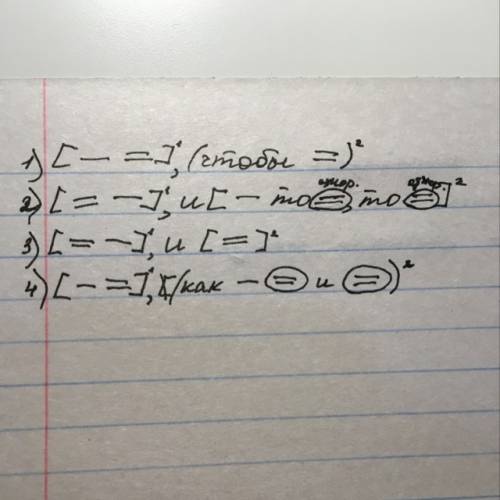 1) [ — = ]¹, (чтобы = )²
2) [ = — ]¹, и [ — то =, то = ]²
3) [ = — ]¹, и [ = ]²
4) [ — = ]¹, (как — = и = )²